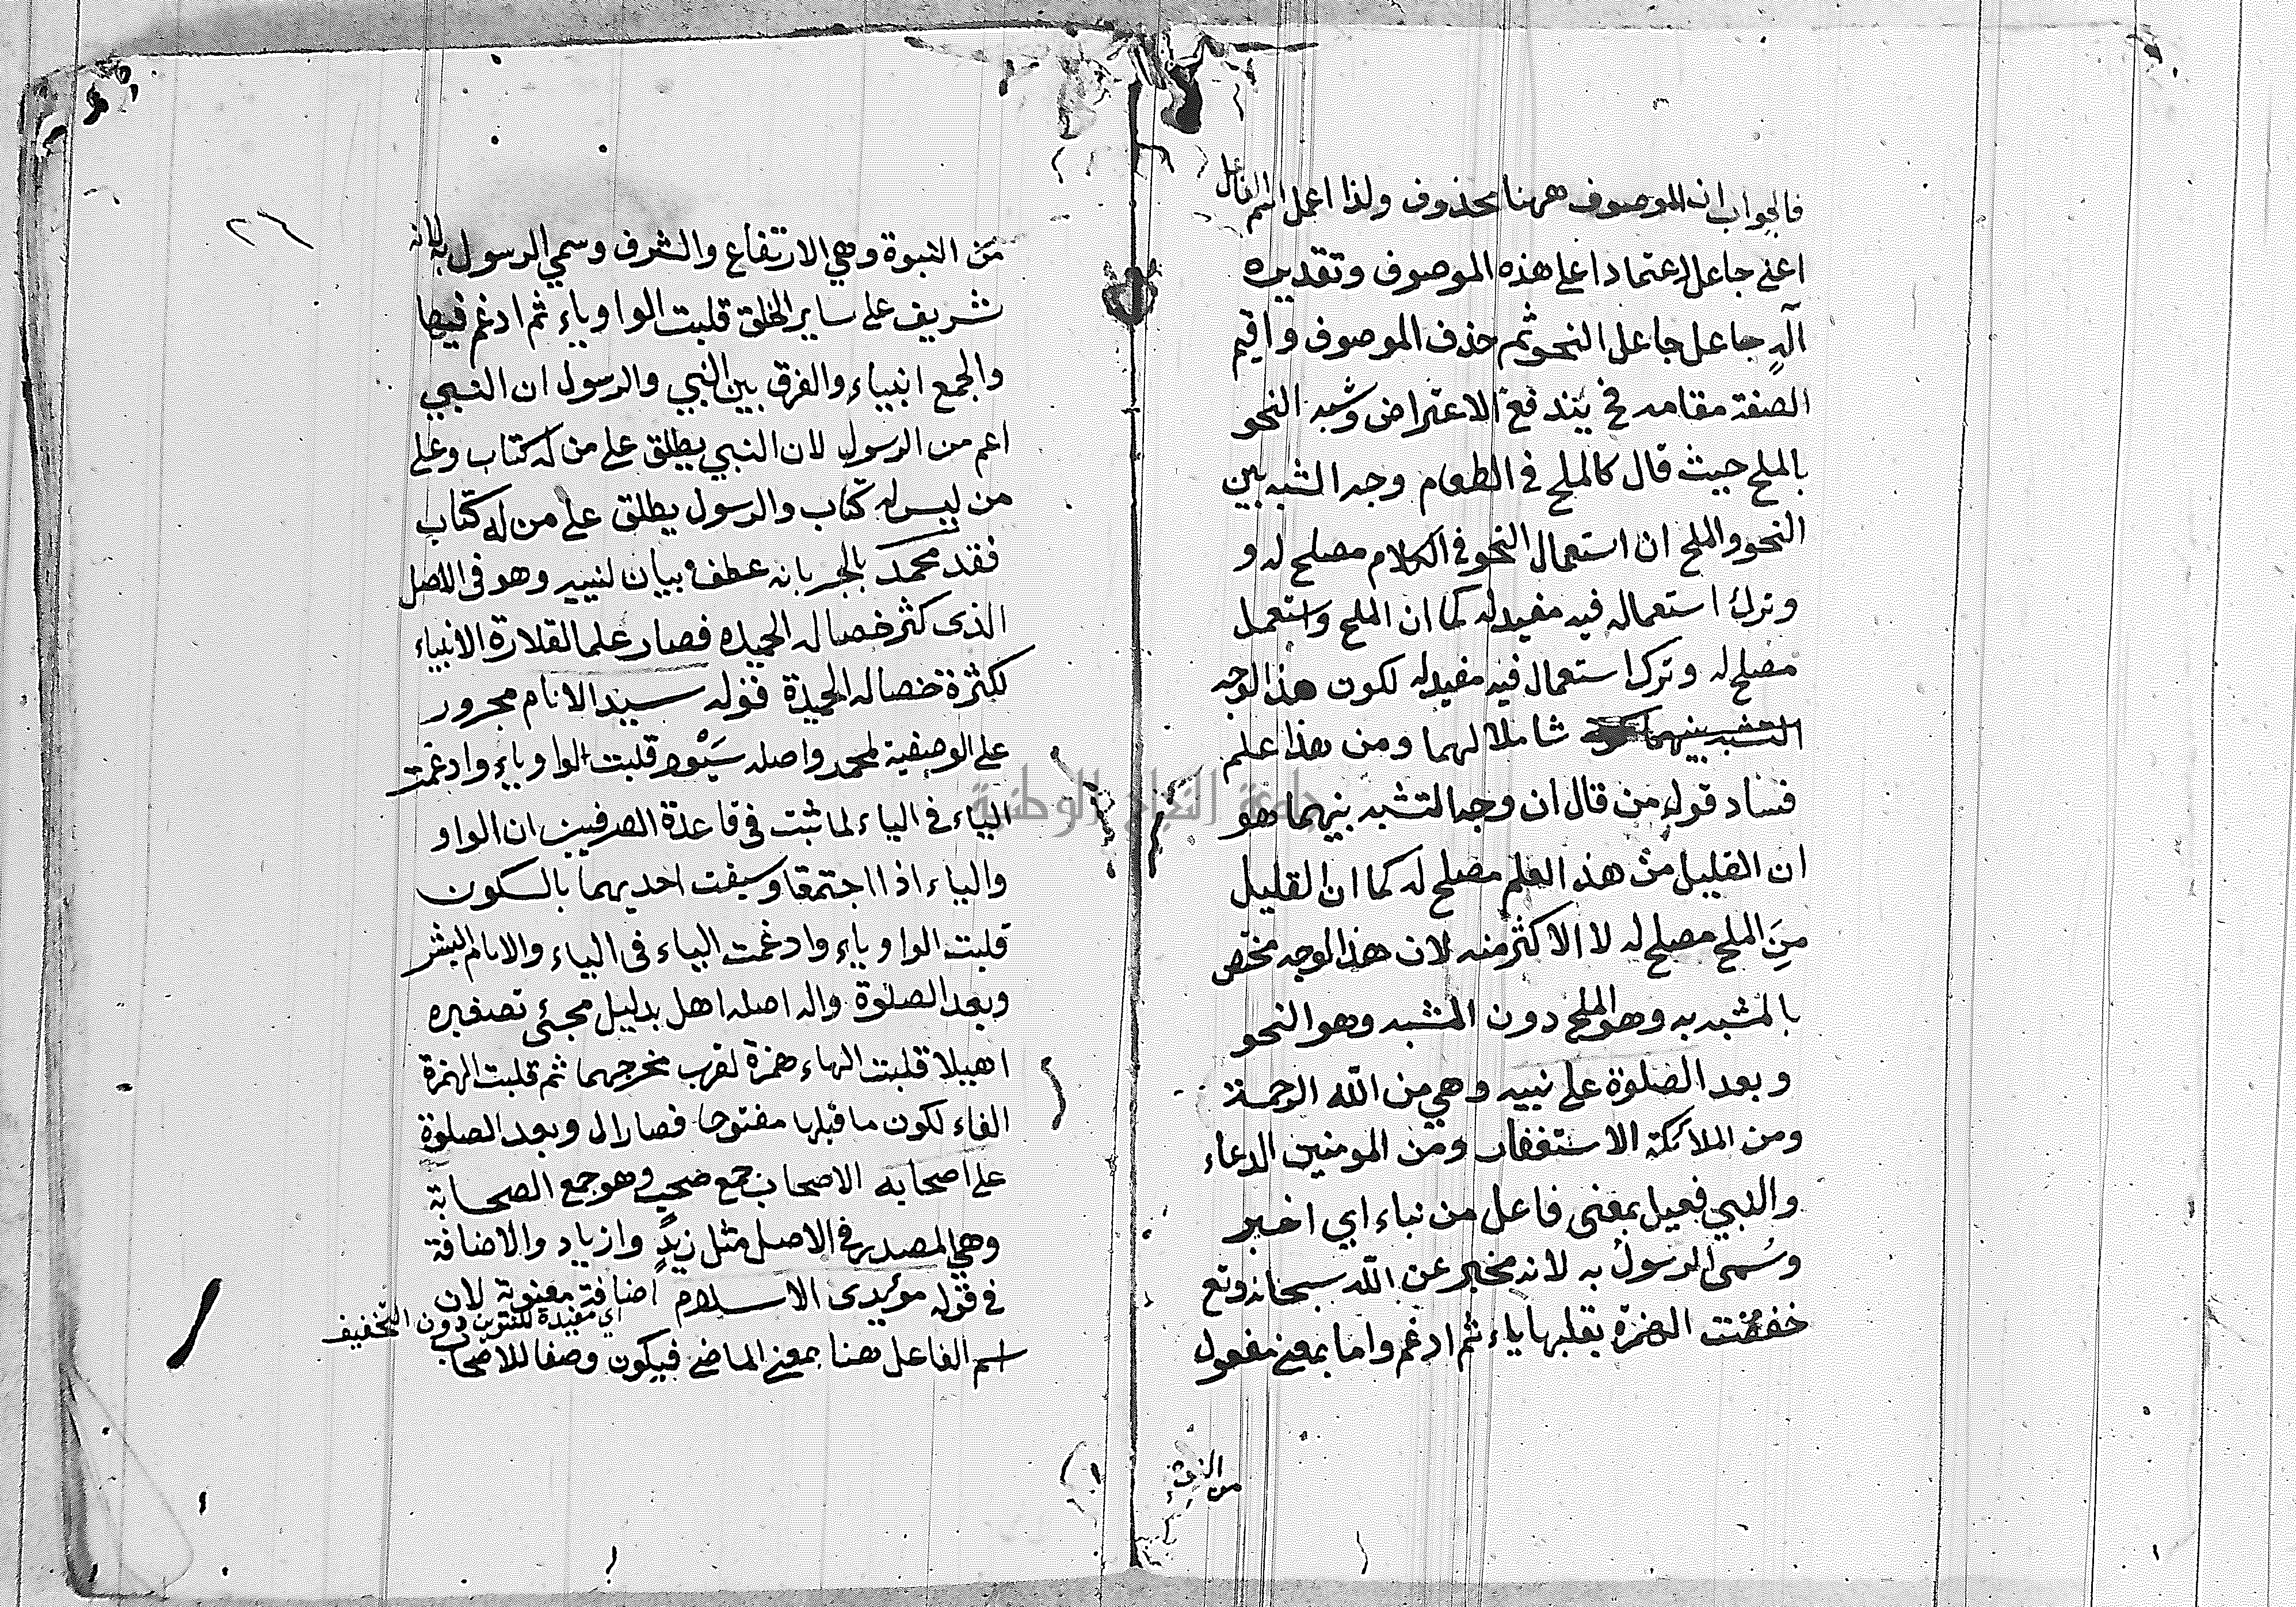 فالجواب ان الموصوف ههنا محذوف ولذا اعمل اسم الفاعل
اعني جاعل اعتمادا على هذه الموصوف وتقديره
الله جاعل جاعل النحو ثم حذف الموصوف واقيم
الصفة مقامه فح يندفع الاعتراض وشبه النحو
بالملح حيث قال كالملح في الطعام وجه الشبه بين
النحو والملح ان استعمال النحو في الكلام مصلح له و
وترك استعماله فيه مفيد له كما ان الملح واستعمل
مصلح له وترك استعمال فيه مفيد له لكون هذا الوجه
التشبه بينهما شاملا لهما ومن هذا علم
فساد قول من قال ان وجه التشبه بينهما هو
ان القليل من هذا العلم مصلح له كما ان القليل
من الملح مصلح له لا الاكثر منه لان هذا الوجه مختص
بالمشبه به وهو الملح دون المشبه وهو النحو
وبعد الصلوة على نبيه وهي من الله الرحمة
ومن الملائكة الاستغفار ومن المومنين الدعاء
والنبي فعيل بمعنى فاعل من نباء اي اخبر
وسمى الرسول به لانه مخبر عن الله سبحانه وتع
خففت الهمزة بقلبها ياء ثم ادغم واما بمعنى مفعول
من النبوة
٢٦
من النبوة وهي الارتفاع والشرف وسمي الرسول به لانه
شريف على ساير الخلق قلبت الواو ياء ثم ادغم فيها
والجمع انبياء والفرق بين النبي والرسول ان النبي
اعم من الرسول لان النبي يطلق على من له كتاب وعلى
من ليس له كتاب والرسول يطلق على من له كتاب
فقد محمد بالجر بانه عطف بيان لنبيه وهو في الاصل
الذى كثر خصاله الحميده فصار علما لقلارة الانبياء
لكثرة خصاله الحميدة قوله سيد الانام مجرور
على الوصفية لمحمد واصله سيود قلبت الواو ياء وادغمت
الياء في الياء لما ثبت في قاعدة الصرفيين ان الواو
والياء اذا اجتمعا وسبقت احديهما بالسكون
قلبت الواو ياء وادغمت الياء فى الياء والانام البشر
وبعد الصلوة واله اصله اهل بدليل مجئ تصغيره
اهيلا قلبت الهاء همزة لقرب مخرجهما ثم قلبت الهمزة
الفاء لكون ما قبلها مفتوحا فصار ال وبعد الصلوة
على اصحابه الاصحاب جمع صحب وهو جمع الصحابة
وهي المصدر في الاصل مثل زيد وازياد والاضافة
في قوله مؤيدى الاسلام اضافة معنوية لان
اي مفيدة للتعريف دون التخفيف
اسم الفاعل هنا بمعنى الماضي فيكون وصفا للاصحاب
جامعة النجاح الوطنية